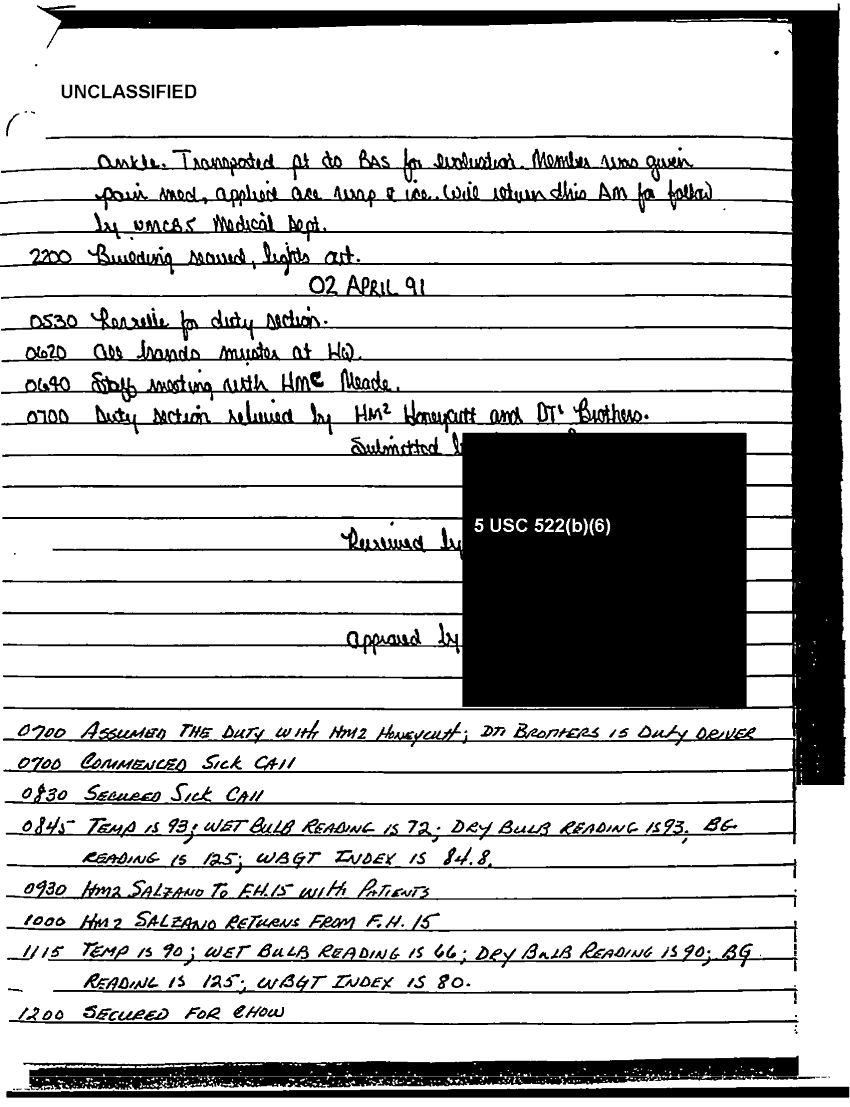 UNCLASSIFIED
ankle. Transported pt to BAS for evaluation. Member was given
pain med, applied ace wrap & ice. Will return this AM for follow
by NMCB5 Medical Dept.
2200 Building secured, lights out.
02 APRIL 91
0530 Reveille for duty section.
0620 All hands muster at HQ.
0640 Staff meeting with HMC Meade.
0700 Duty section relieved by HM2 Honeycutt and DT1 Brothers.
Submitted
5 USC 522(b)(6)
Reviewed by
Approved by
0700 ASSUMED THE DUTY WITH HM2 HONEYCUTT; DT1 BROTHERS IS DUTY DRIVER
0700 COMMENCED SICK CALL
0830 SECURED SICK CALL
0845 TEMP IS 93; WET BULB READING IS 72; DRY BULB READING IS 93. BG
READING IS 125; WBGT INDEX IS 84.8.
0930 HM2 SALZANO TO F.H.15 WITH PATIENTS
1000 HM2 SALZANO RETURNS FROM F.H. 15
1115 TEMP IS 90; WET BULB READING IS 66; DRY BULB READING IS 90; BG
READING IS 125; WBGT INDEX IS 80.
1200 SECURED FOR CHOW